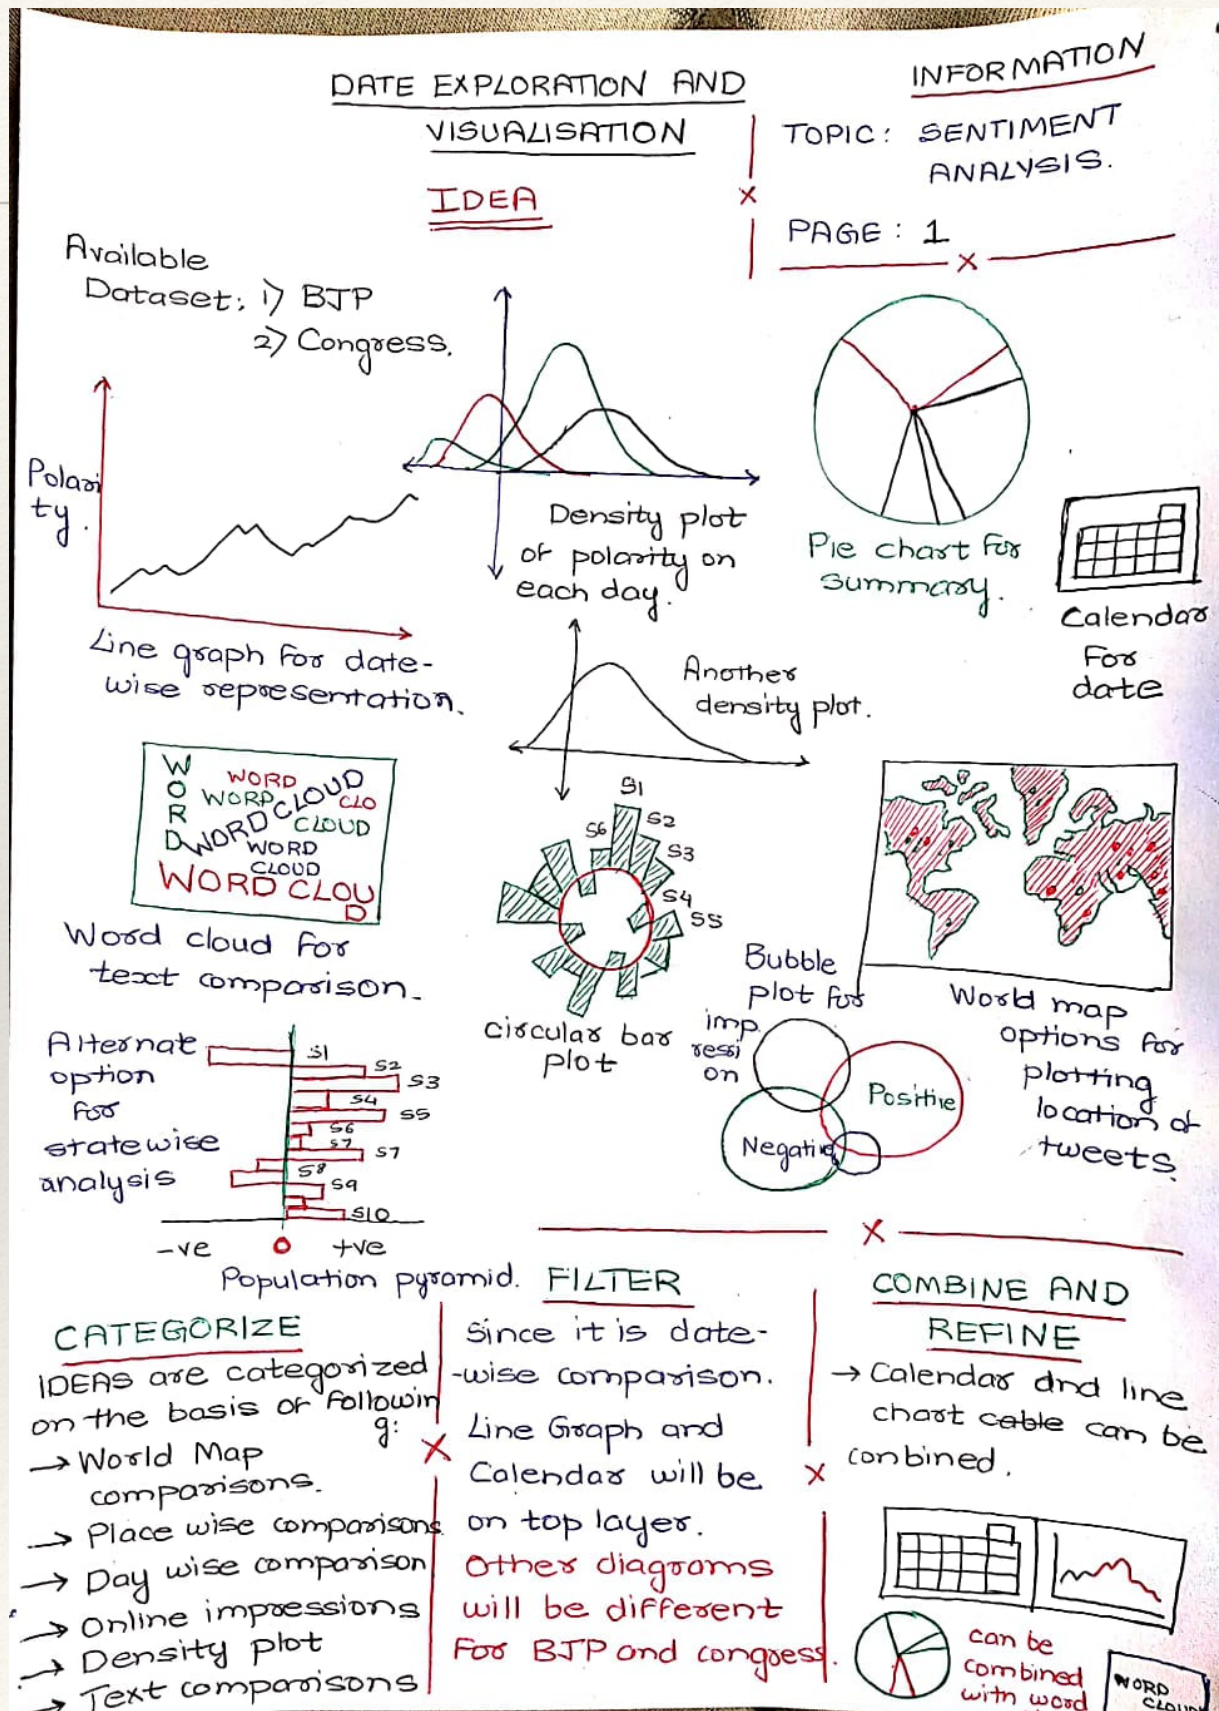 DATE EXPLORATION AND
VISUALISATION
IDEA
INFORMATION
TOPIC: SENTIMENT
ANALYSIS.
PAGE: 1
Available
Dataset: 1) BJP
2) Congress.
Polari
ty.
Line graph for date-
wise representation.
Density plot
of polarity on
each day.
Pie chart for
summary.
Calendar
For
date
Another
density plot.
W
O
R
D
WORD
WORD
CLOUD
CLO
WORD
CLOUD
WORD
CLOUD
WORD CLOU
D
Word cloud for
text comparison.
S1
S2
S3
S4
S5
S6
circular bar
plot
World map
options for
plotting
location of
tweets.
Bubble
plot for
imp
ressi
on
Positive
Negative
Alternate
option
for
statewise
analysis
S1
S2
S3
S4
S5
S6
S7
S7
S8
S9
S10
-ve 0 +ve
Population pyramid.
CATEGORIZE
IDEAS are categorized
on the basis of followin
g:
→ World Map
comparisons.
→ Place wise comparisons
→ Day wise comparison
→ Online impressions
→ Density plot
→ Text comparisons
FILTER
Since it is date-
-wise comparison.
Line Graph and
Calendar will be
on top layer.
Other diagrams
will be different
For BJP and congress.
COMBINE AND
REFINE
→ Calendar and line
chart cable can be
combined.
can be
combined
with word
WORD
CLOUD